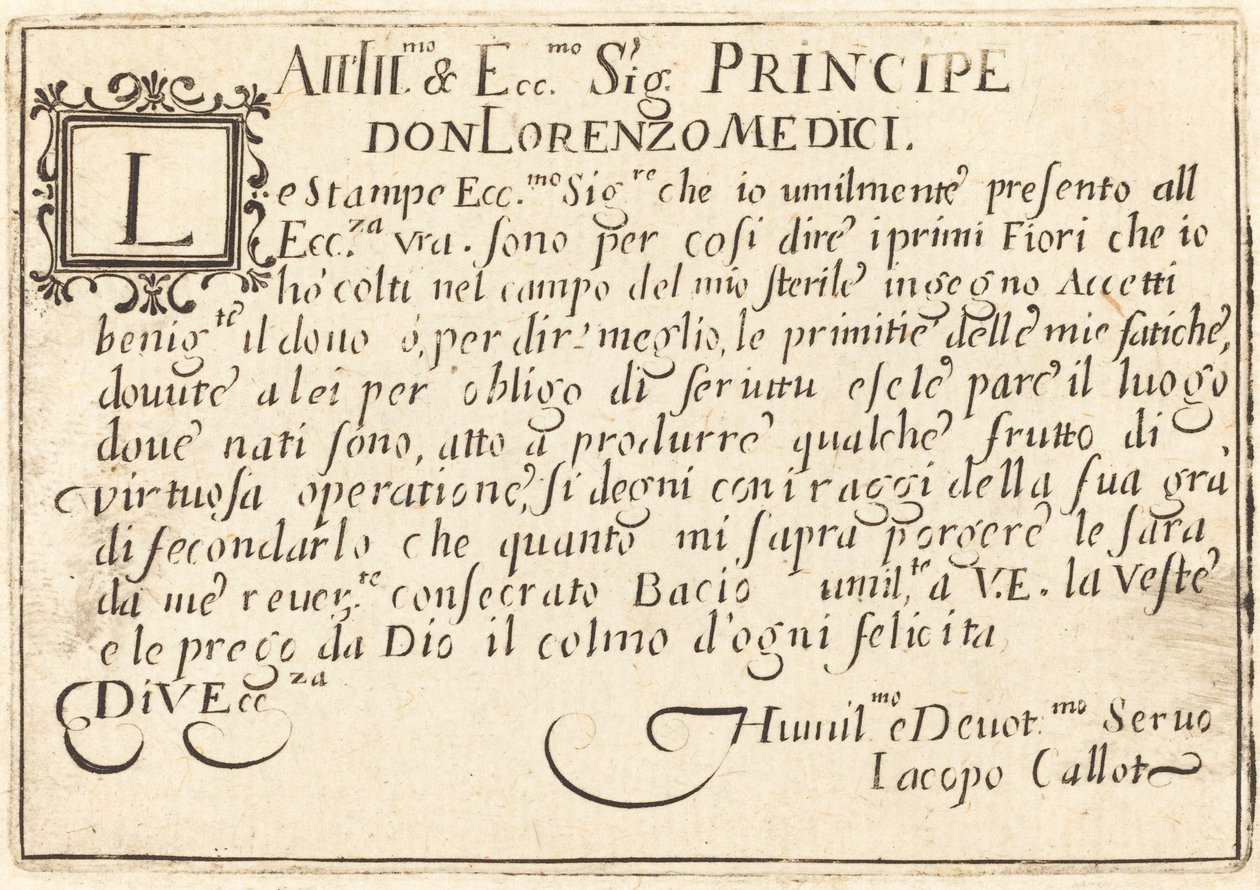 All Ill.mo & Ecc.mo Sig.r PRINCIPE
DON LORENZO MEDICI.
Le Stampe Ecc.mo Sig re che io umilmente presento all
Ecc.za vra. sono per cosi dire i primi Fiori che io
hò colti nel campo del mio sterile ingegno Accetti
benig te il dono ò, per dir meglio, le primitie delle mie fatiche,
douute a lei per obligo di seruitu e se le pare il luogo
doue nati sono, atto à produrre qualche frutto di
virtuosa operatione, si degni con i raggi della sua gra
di fecondarlo che quanto mi sapra porgere le sara
da me reuer.te consecrato Bacio umil.te a V.E. la Veste
e le prego da Dio il colmo d'ogni felicita
Di V Ecc za
Humil mo e Deuot.mo Seruo
Iacopo Callot